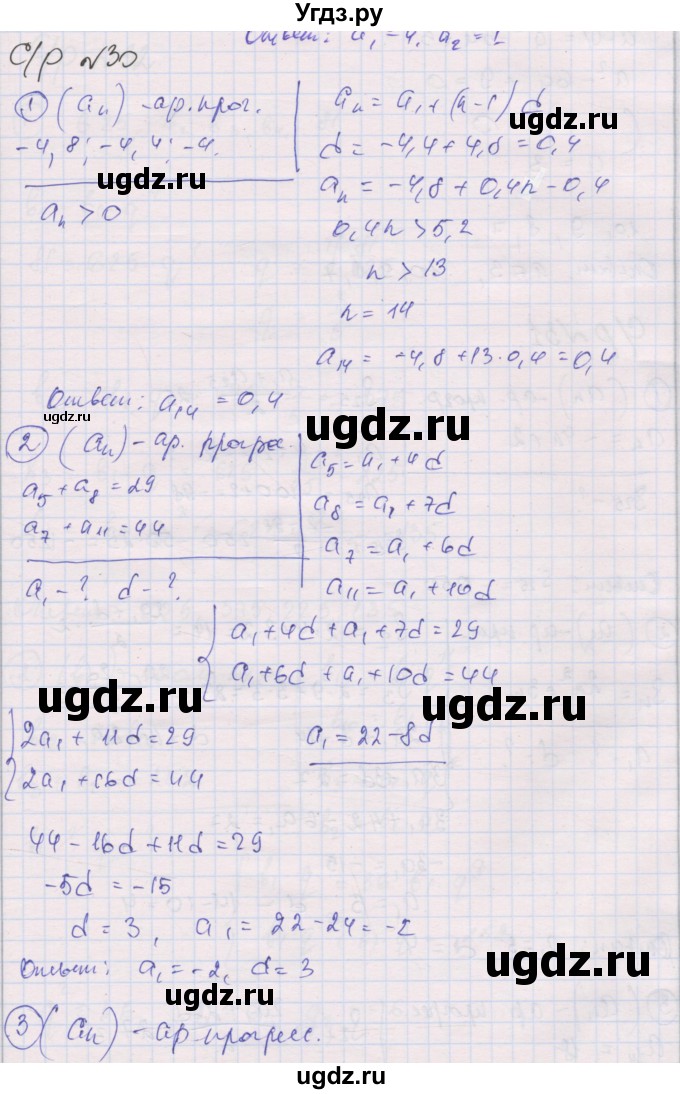 Угдз.ру
Ответ: a₁ -4, a₂ = 1
С/р №30
① (aₙ) - ар. прог.
-4,8; -4,4; -4.
ugdz.ru
aₙ > 0
aₙ = a₁ + (n-1) d
ugdz.ru
d = -4,4 + 4,8 = 0,4
aₙ = -4,8 + 0,4n - 0,4
0,4n > 5,2
n > 13
n = 14
a₁₄ = -4,8 + 13·0,4 = 0,4
ugdz.ru
Ответ: a₁₄ = 0,4
ugdz.ru
② (aₙ) - ар. прогрес.
a₅ + a₈ = 29
a₇ + a₁₁ = 44
a₁ - ? d - ?
a₅ = a₁ + 4d
a₈ = a₁ + 7d
a₇ = a₁ + 6d
a₁₁ = a₁ + 10d
ugdz.ru
a₁ + 4d + a₁ + 7d = 29
a₁ + 6d + a₁ + 10d = 44
ugdz.ru
ugdz.ru
2a₁ + 11d = 29
2a₁ + 16d = 44
a₁ = 22 - 8d
ugdz.ru
44 - 16d + 11d = 29
-5d = -15
d = 3, a₁ = 22 - 24 = -2
ugdz.ru
Ответ: a₁ = -2, d = 3
ugdz.ru
③ (aₙ) - ар прогресс.
ugdz.ru